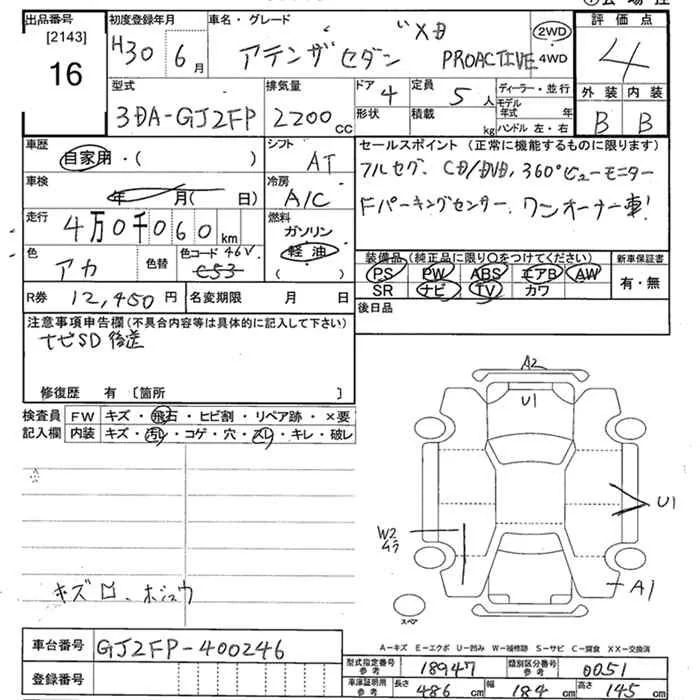 出品番号
[2143]
16
初度登録年月
H30 6月
車名・グレード
アテンザセダン XD PROACTIVE
2WD
4WD
評価点
4
外装 内装
B B
型式
3DA-GJ2FP
排気量
2200cc
ドア 4
形状
定員 5人
積載 kg
ディーラー・並行
モデル年式 年
ハンドル 左・右
車歴
自家用・( )
シフト
AT
車検
年 月( 日)
冷房
A/C
走行
4万0千060km
燃料
ガソリン
軽油
( )
色
アカ
色替
色コード 46V
C53
R券 12,450円
名変期限 月 日
セールスポイント (正常に機能するものに限ります)
フルセグ、CD/DVD、360°ビューモニター
Fパーキングセンサー、ワンオーナー車!
装備品(純正品に限り○をつけてください)
PS PW ABS エアB AW
SR ナビ TV カワ
新車保証書
有・無
後日品
注意事項申告欄(不具合内容等は具体的に記入して下さい)
ナビSD後送
修復歴 有 〔箇所 〕
検査員 FW キズ・飛石・ヒビ割・リペア跡・×要
記入欄 内装 キズ・汚レ・コゲ・穴・スレ・キレ・破レ
A2
U1
U1
W2
A1
スペア
A-キズ E-エクボ U-凹み W-補修跡 S-サビ C-腐食 XX-交換済
車台番号 GJ2FP-400246
登録番号
型式指定番号 参考 18947
類別区分番号 参考 0051
車庫証明用 参考 長さ 486cm 幅 184cm 高さ 145cm